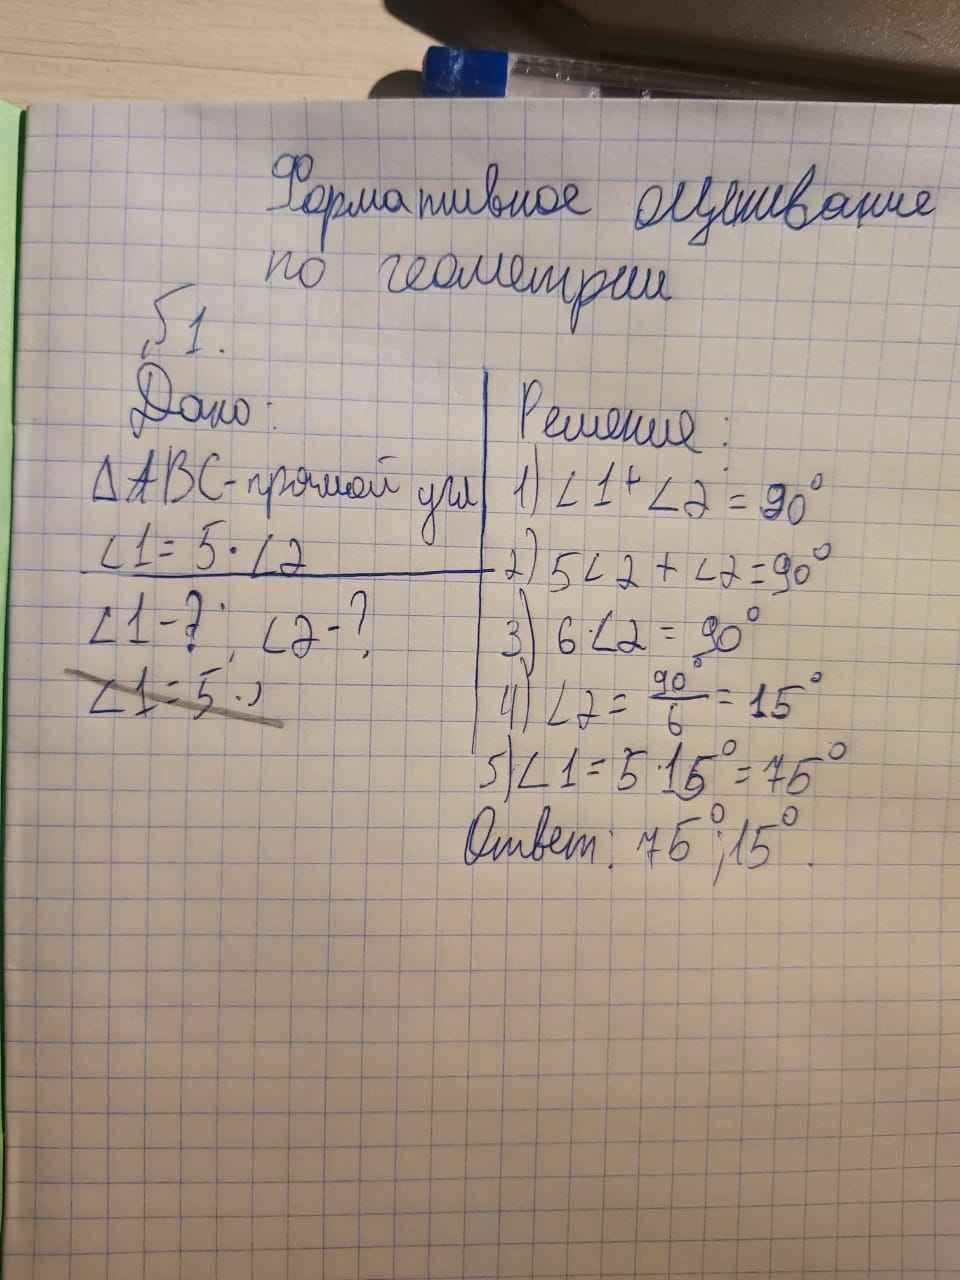 Формативное оценивание
по геометрии
№1.
Дано:
ΔABC-прямой угл
∠1 = 5·∠2
∠1-?; ∠2-?
∠1 = 5·
Решение:
1) ∠1 + ∠2 = 90°
2) 5∠2 + ∠2 = 90°
3) 6·∠2 = 90°
4) ∠2 = 90°/6 = 15°
5) ∠1 = 5·15° = 75°
Ответ: 75°; 15°.